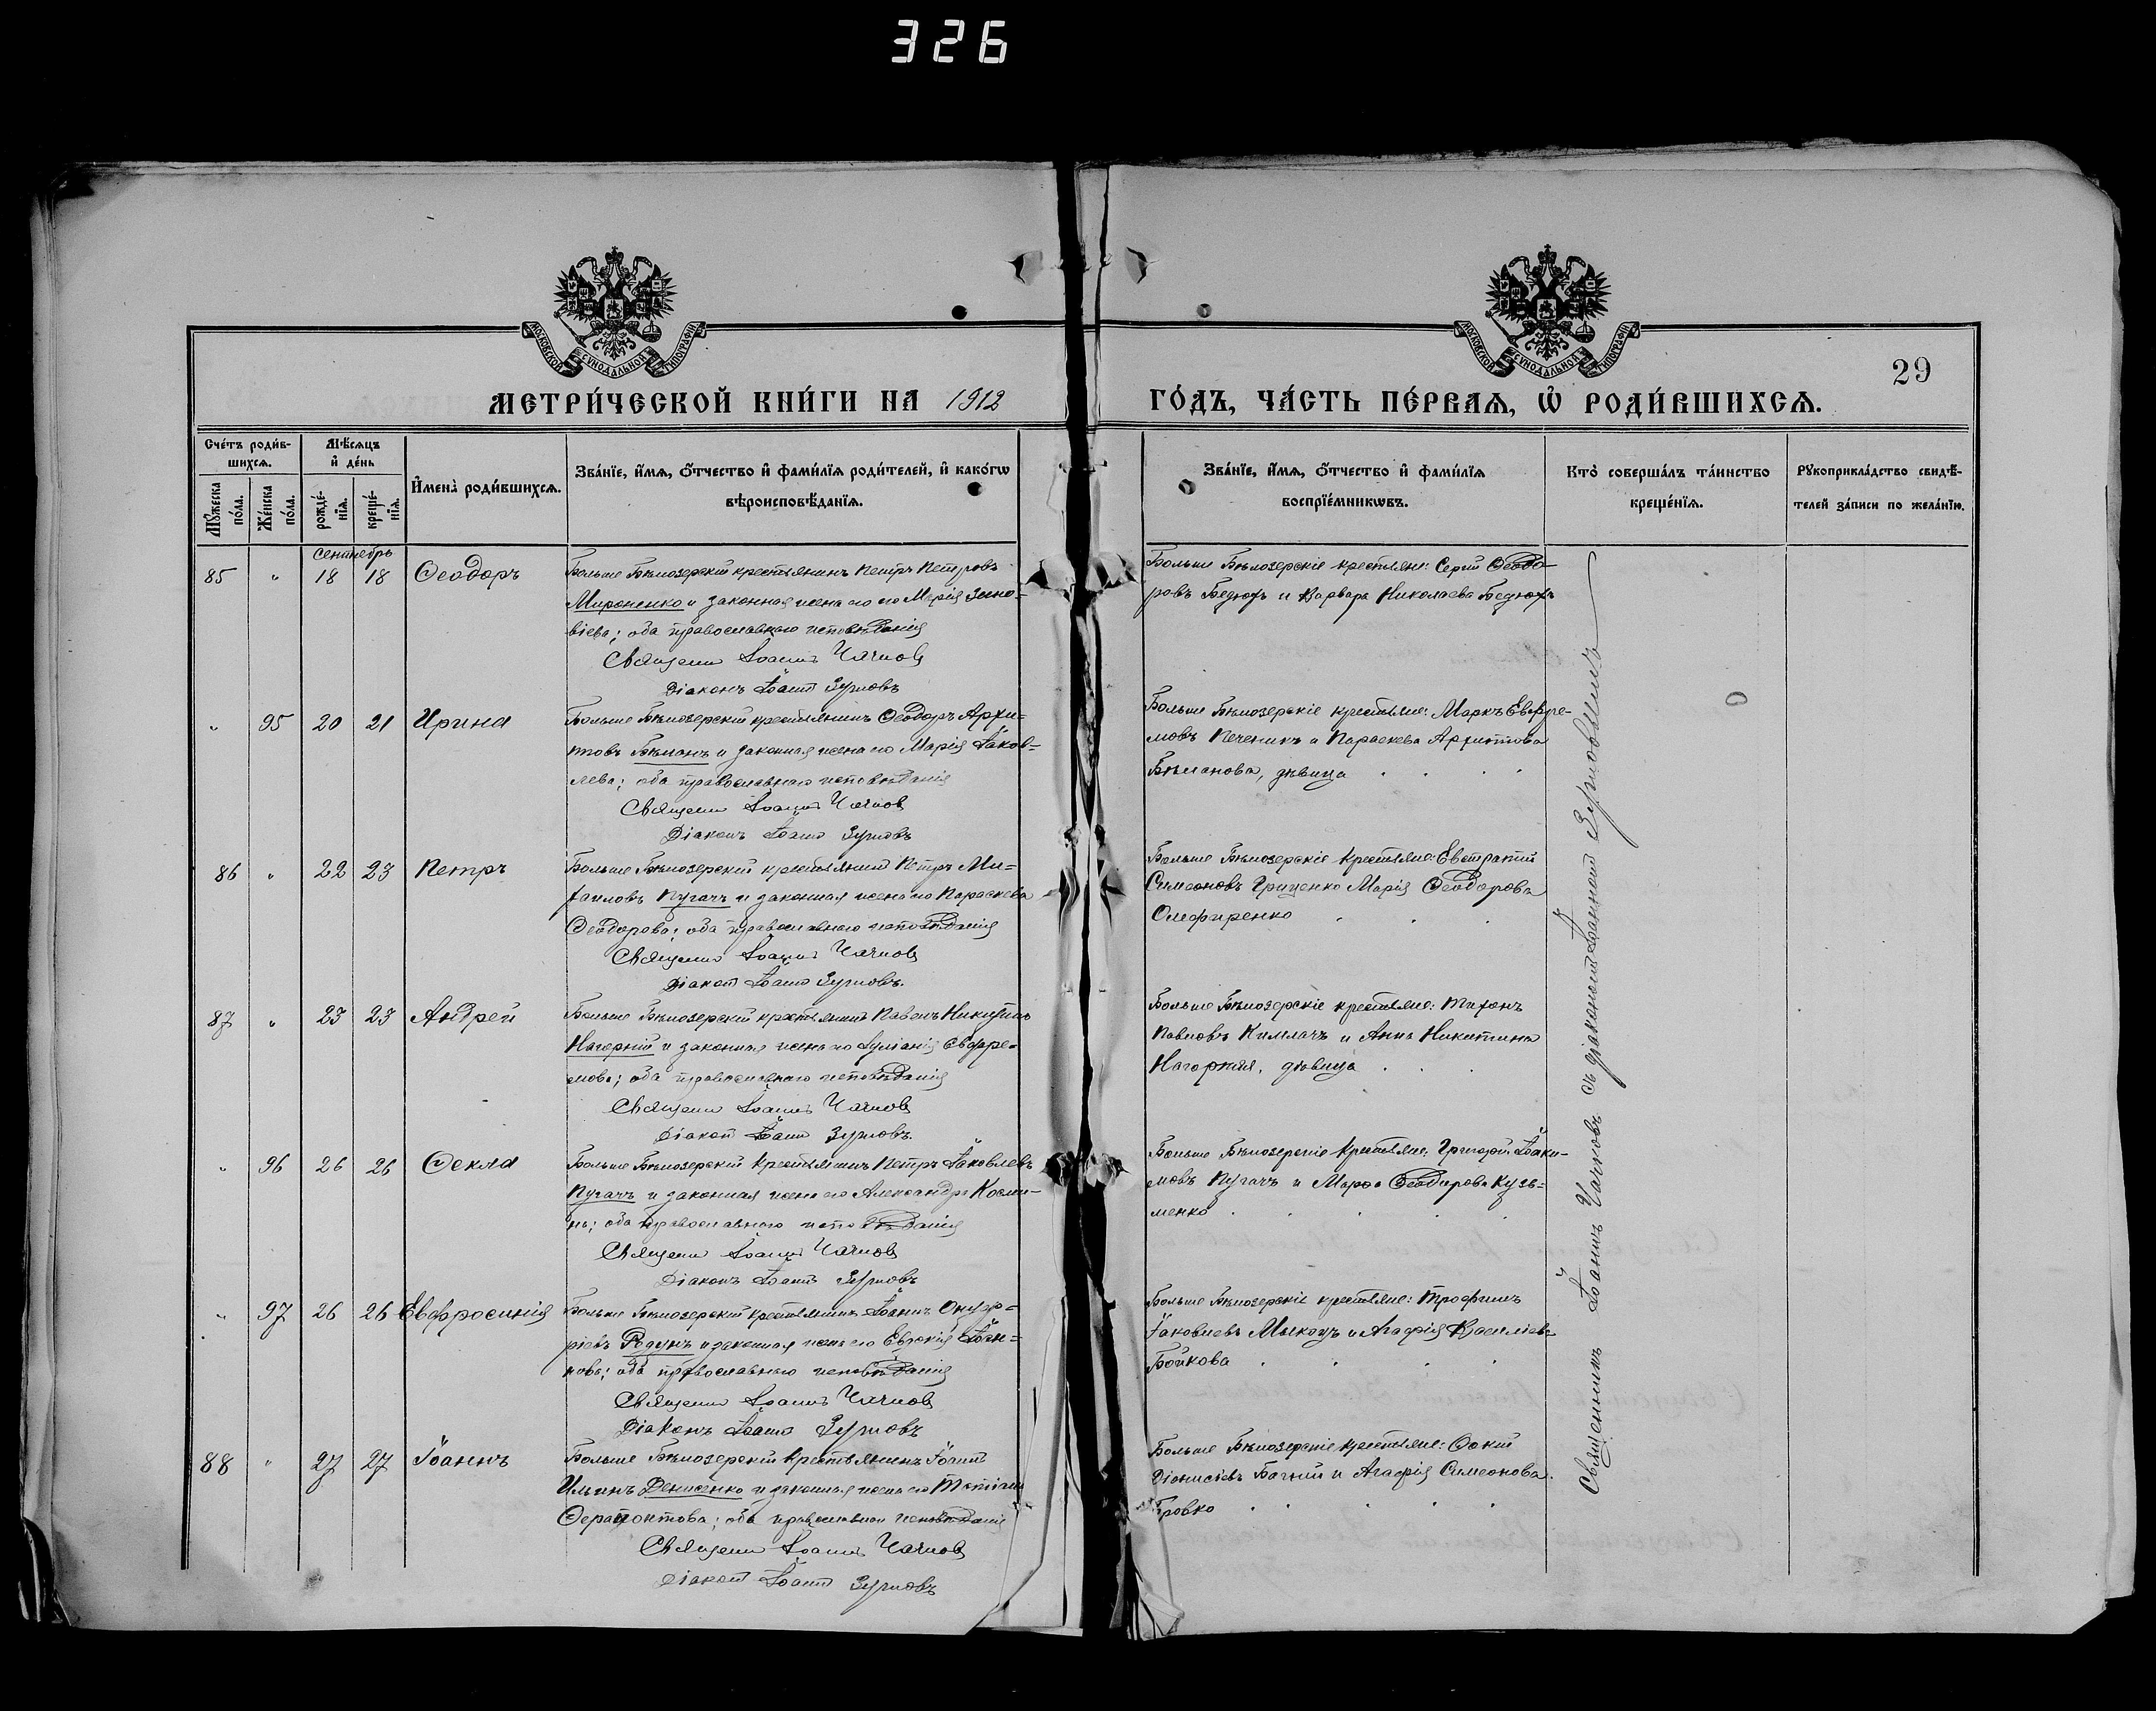 326
МОСКОВСКОЙ СѴНОДАЛЬНОЙ ТИПОГРАФІИ
МОСКОВСКОЙ СѴНОДАЛЬНОЙ ТИПОГРАФІИ
29
МЕТРИ́ЧЕСКОЙ КНИ́ГИ НА 1912
ГО́ДЪ, ЧА́СТЬ ПЕ́РВАѦ, Ѡ҆ РОДИ́ВШИХСѦ.
Сче́тъ роди́в-
шихсѧ.
Мѹ́жеска по́ла.
Же́нска по́ла.
Мѣ́сѧцъ
и҆ де́нь
рожде́-
нїѧ.
креще́-
нїѧ.
И҆мена̀ роди́вшихсѧ.
Зва́нїе, и҆́мѧ, ѻ҆́тчество и҆ фами́лїѧ роди́телей, и҆ како́гѡ
вѣроисповѣ́данїѧ.
Зва́нїе, и҆́мѧ, ѻ҆́тчество и҆ фами́лїѧ
воспрїе́мникѡвъ.
Кто̀ соверша́лъ та́инство
креще́нїѧ.
Рѹкоприкла́дство свидѣ́-
телей за́писи по жела́нїю.
Сентябрь
85 " 18 18 Ѳеодоръ
Больше Бѣлозерскій крестьянинъ Петръ Петровъ
Мироненко и законная жена его Марія Зино-
віева; оба православнаго исповѣданія
Священн Іоаннъ Чачковъ
Діаконъ Іоаннъ Зерновъ
Больше Бѣлозерскіе крестьяне: Сергій Ѳеодо-
ровъ Бедюхъ и Варвара Николаева Бедюхъ
" 95 20 21 Ирина
Больше Бѣлозерскій крестьянинъ Ѳеодоръ Архи-
повъ Бѣланъ и законная жена его Марія Іаков-
лева; оба православнаго исповѣданія
Священн Іоаннъ Чачков
Діаконъ Іоаннъ Зерновъ
Больше Бѣлозерскіе крестьяне: Маркъ Евфре-
мовъ Печеникъ и Параскева Архиппова
Бѣланова, дѣвица
86 " 22 23 Петръ
Больше Бѣлозерскій крестьянинъ Петръ Ми-
хаиловъ Пугачъ и законная жена его Параскева
Ѳеодорова; оба православнаго исповѣданія
Священн Іоаннъ Чачковъ
Діаконъ Іоаннъ Зерновъ.
Больше Бѣлозерскіе крестьяне: Евстратій
Симеоновъ Гриценко Марія Ѳеодорова
Олефиренко
87 " 23 23 Андрей
Больше Бѣлозерскій крестьянинъ Павелъ Никитинъ
Нагорній и законная жена его Іуліанія Евфре-
мова; оба православнаго исповѣданія
Священн Іоаннъ Чачковъ
Діаконъ Іоаннъ Зерновъ.
Больше Бѣлозерскіе крестьяне: Тихонъ
Павловъ и Анна Никитина
Нагорняя, дѣвица
" 96 26 26 Ѳекла
Больше Бѣлозерскій крестьянинъ Петръ Іаковлевъ
Пугачъ и законная жена его Александра Косми-
на; оба православнаго исповѣданія
Священн Іоаннъ Чачковъ
Діаконъ Іоаннъ Зерновъ
Больше Бѣлозерскіе крестьяне: Григорій Іаки-
мовъ Пугачъ и Марѳа Ѳеодорова Кузь-
менко
" 97 26 26 Евфросинія
Больше Бѣлозерскій крестьянинъ Іоаннъ Онуф-
ріевъ Редунъ и законная жена его Евгенія Іоан-
нова; оба православнаго исповѣданія
Священн Іоаннъ Чачковъ
Діаконъ Іоаннъ Зерновъ
Больше Бѣлозерскіе крестьяне: Трофимъ
Іаковлевъ и Агафія Василіева
Бойкова
88 " 27 27 Іоаннъ
Больше Бѣлозерскій крестьянинъ Іоаннъ
Ильинъ Денисенко и законная жена его Татіана
Ѳерапонтова; оба православнаго исповѣданія
Священн Іоаннъ Чачковъ
Діаконъ Іоаннъ Зерновъ
Больше Бѣлозерскіе крестьяне: Фокій
Діонисіевъ и Агафія Симеонова
Бровко
Священникъ Іоаннъ Чачковъ съ діакономъ Іоанномъ Зерновымъ